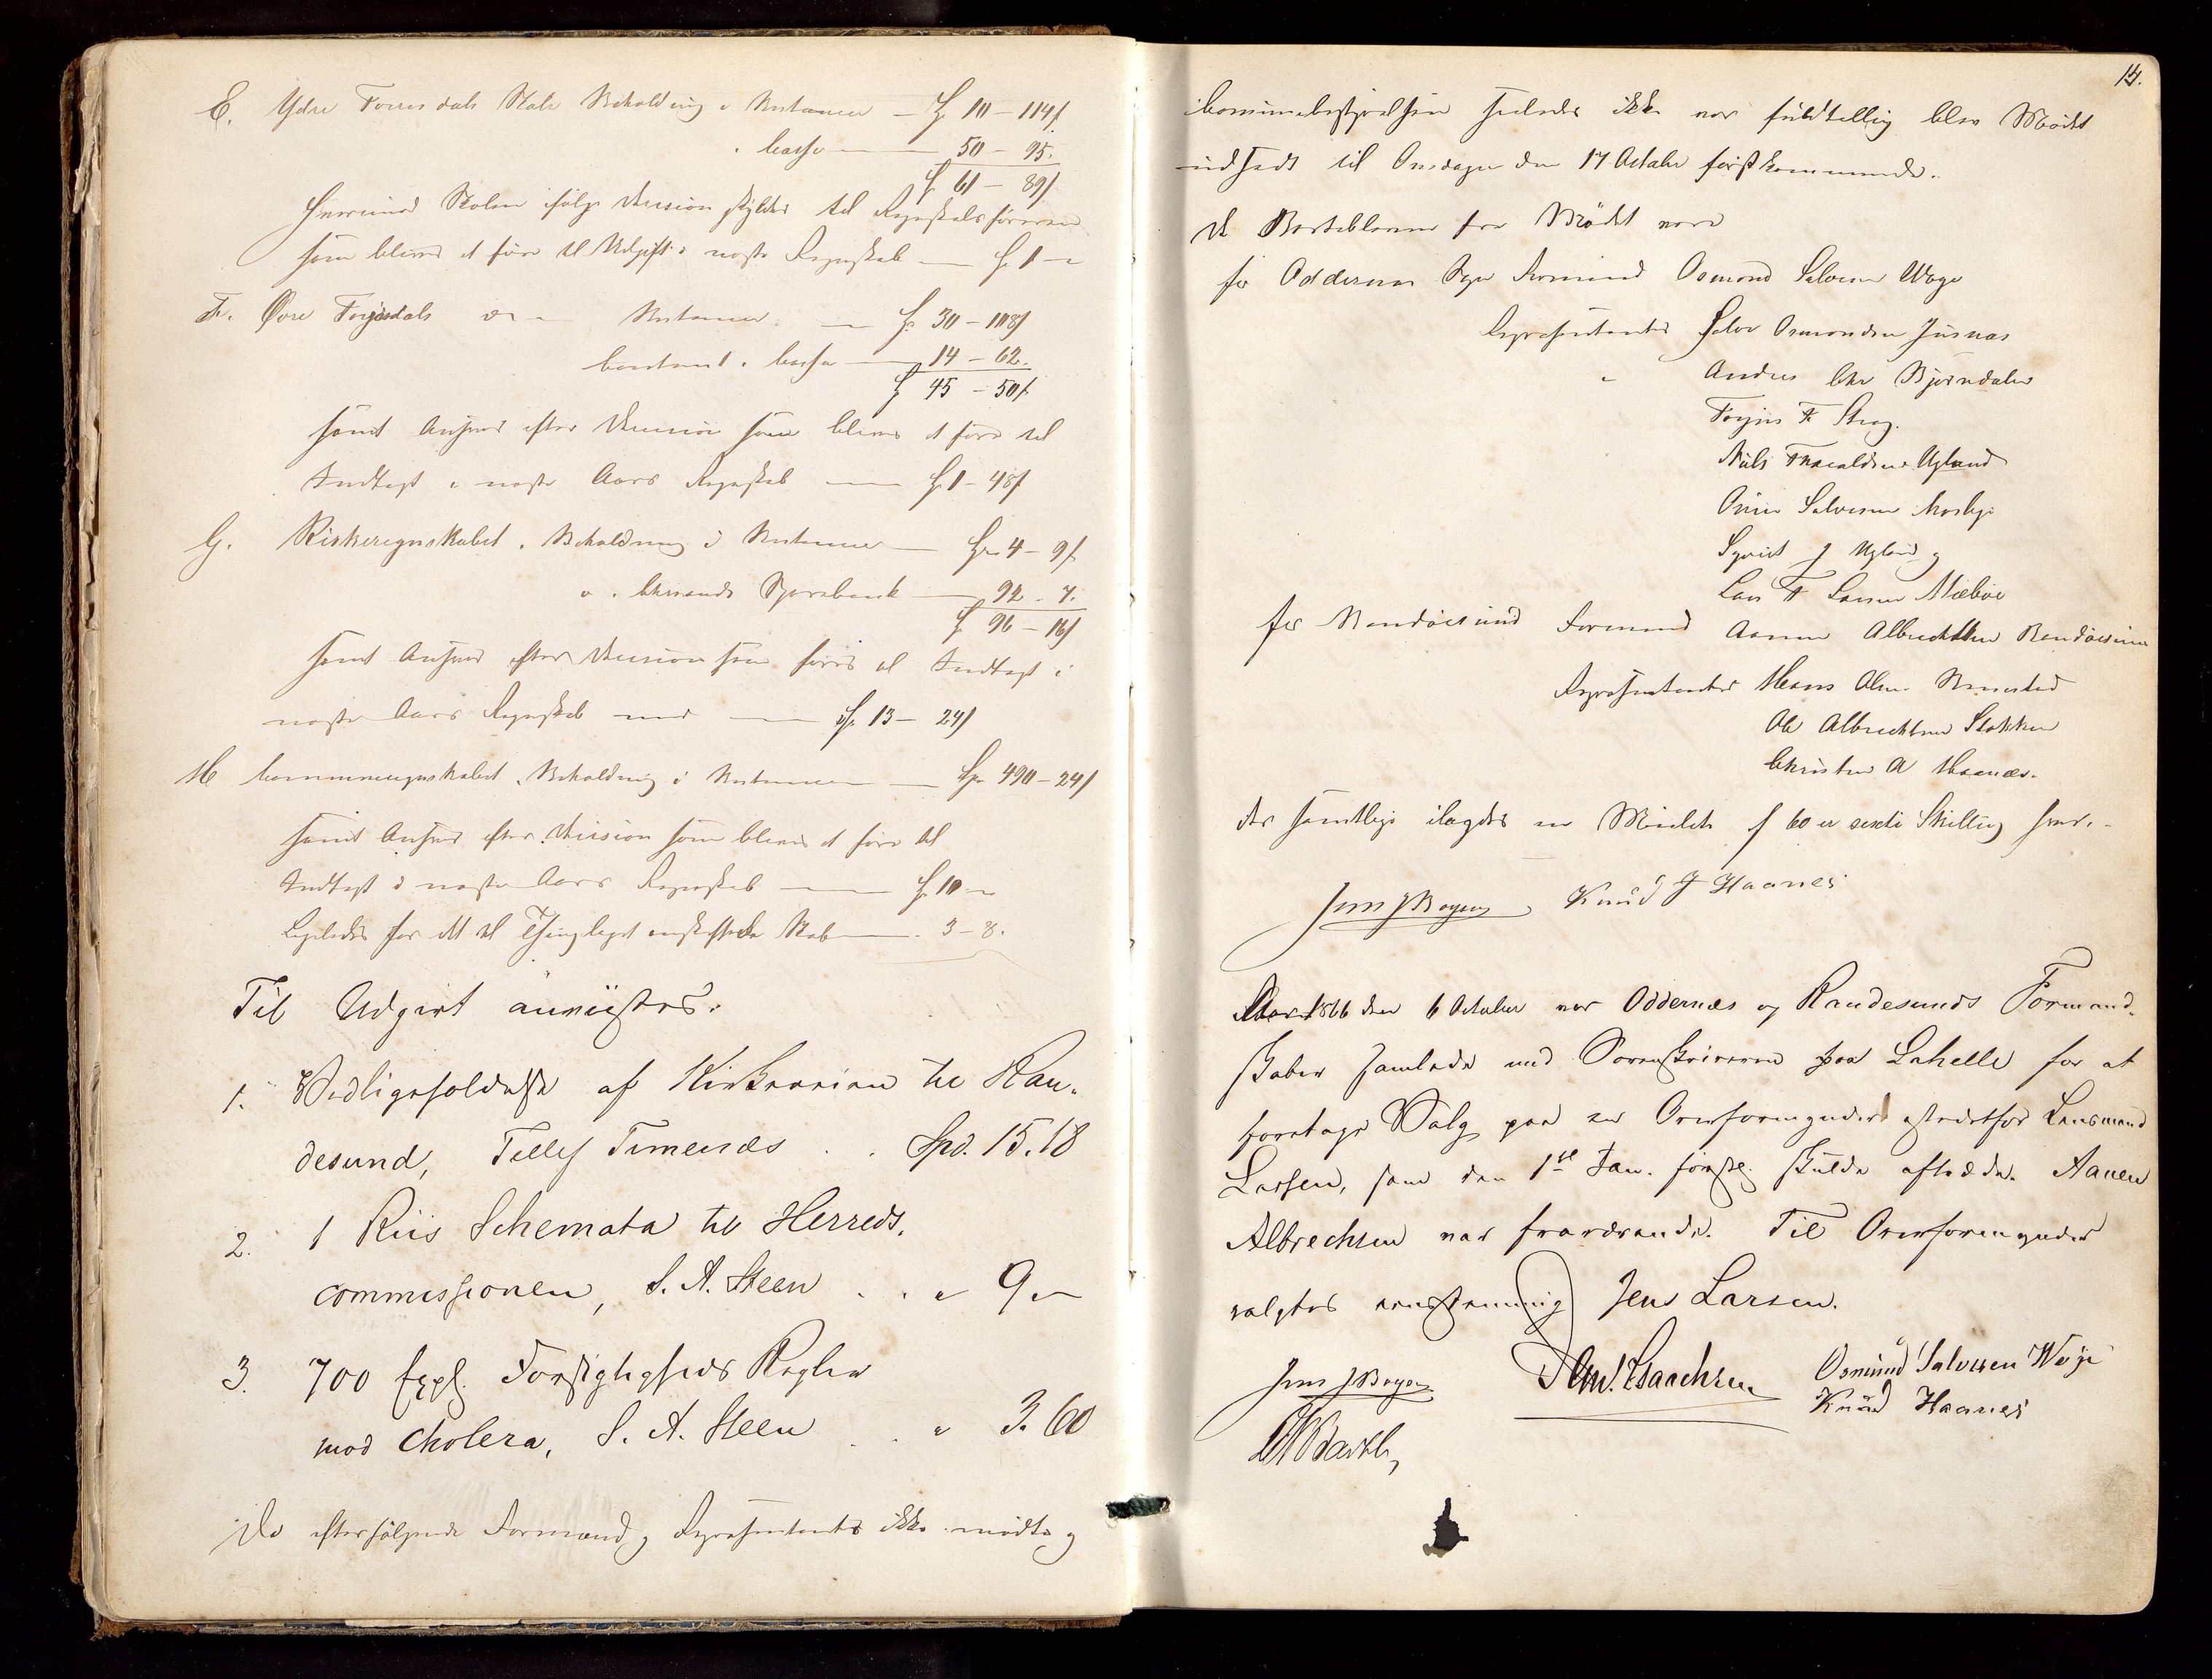 E. Ydre Torrisdals Skole Beholdning i Restancer — Spd 10 – 114 s
i Casse — 50 – 95.
Spd 61 – 89 s
hvorimod Skolen ifølge Decision skyldes til Regnskabsføreren
som bliver at føre til Udgift i næste Regnskab — Spd 1 –
F. Øvre Torrisdals do Restancer — Spd 30 – 108 s
contant i Casse — 14 – 62.
Spd 45 – 50 s
samt Ansvar efter Decision som bliver at føre til
Indtægt i næste Aars Regnskab — Spd 1 – 48 s
G. Kirkeregnskabet, Beholdning i Restancer — Spd 4 – 9 s
i Chrsands Sparebank — 92 – 7.
Spd 96 – 16 s
samt Ansvar efter Decision som føres til Indtægt i
næste Aars Regnskab med — Spd 13 – 24 s
H Communeregnskabet, Beholdning i Restancer — Spd 490 – 24 s
samt Ansvar efter Decision som bliver at føre til
Indtægt i næste Aars Regnskab — Spd 10 –
Ligeledes for det til Thinglaget anskaffede Skab — 3 – 8.
Til Udgivt anvistes:
1. Vedligeholdelse af Kirkeveien til Ran-
desund, Tellef Timenes . . Spd. 15.18
2. 1 Riis Schemata til Herreds-
commissionen, S. A. Steen . . " 9 "
3. 700 Expl. Forsigtigheds Regler
mod Cholera, S. A. Steen . . " 3. 60
Da efterfølgende Formænd og Repræsentanter ikke mødte og
15.
Communebestyrelsen saaledes ikke var fuldtallig blev Mødet
udsadt til Onsdagen den 17 October førstkommende.
De Borteblevne fra Mødet vare
for Oddernes Sogn Formand Osmond Salvesen Wage
Repræsentanter Salve Osmondsen
" Anders Chr Bjørndalen
Torjus T Stray
Niels Thoraldsen Ugland
Salvesen Mosbye
J Ugland og
Lars T Larsen Mæbøe
for Randøesund Formand Aanen Albrechtsen Randøesund
Repræsentanter Hans Olsen
Ole Albrechtsen Stokken
Christen A Haanæs.
der samtlige ilagdes en Mulct af 60 er sexti Skilling hver. -
Jens J Boysen Knud J Haanes
Aar 1866 den 6 October var Oddernæs og Randesunds Formand-
skaber samlede med Sorenskriveren paa Lahelle for at
foretage Valg paa en Overformynder istedetfor Lensmand
Larsen, som den 1ste Jan. førstk. skulde aftræde. Aanen
Albrechsen var fraværende. Til Overformynder
valgtes eenstemmig Jens Larsen.
Jens J Boysen Aml. Isaachsen Osmund Salvesen Woje
Knud Haanes
Barth